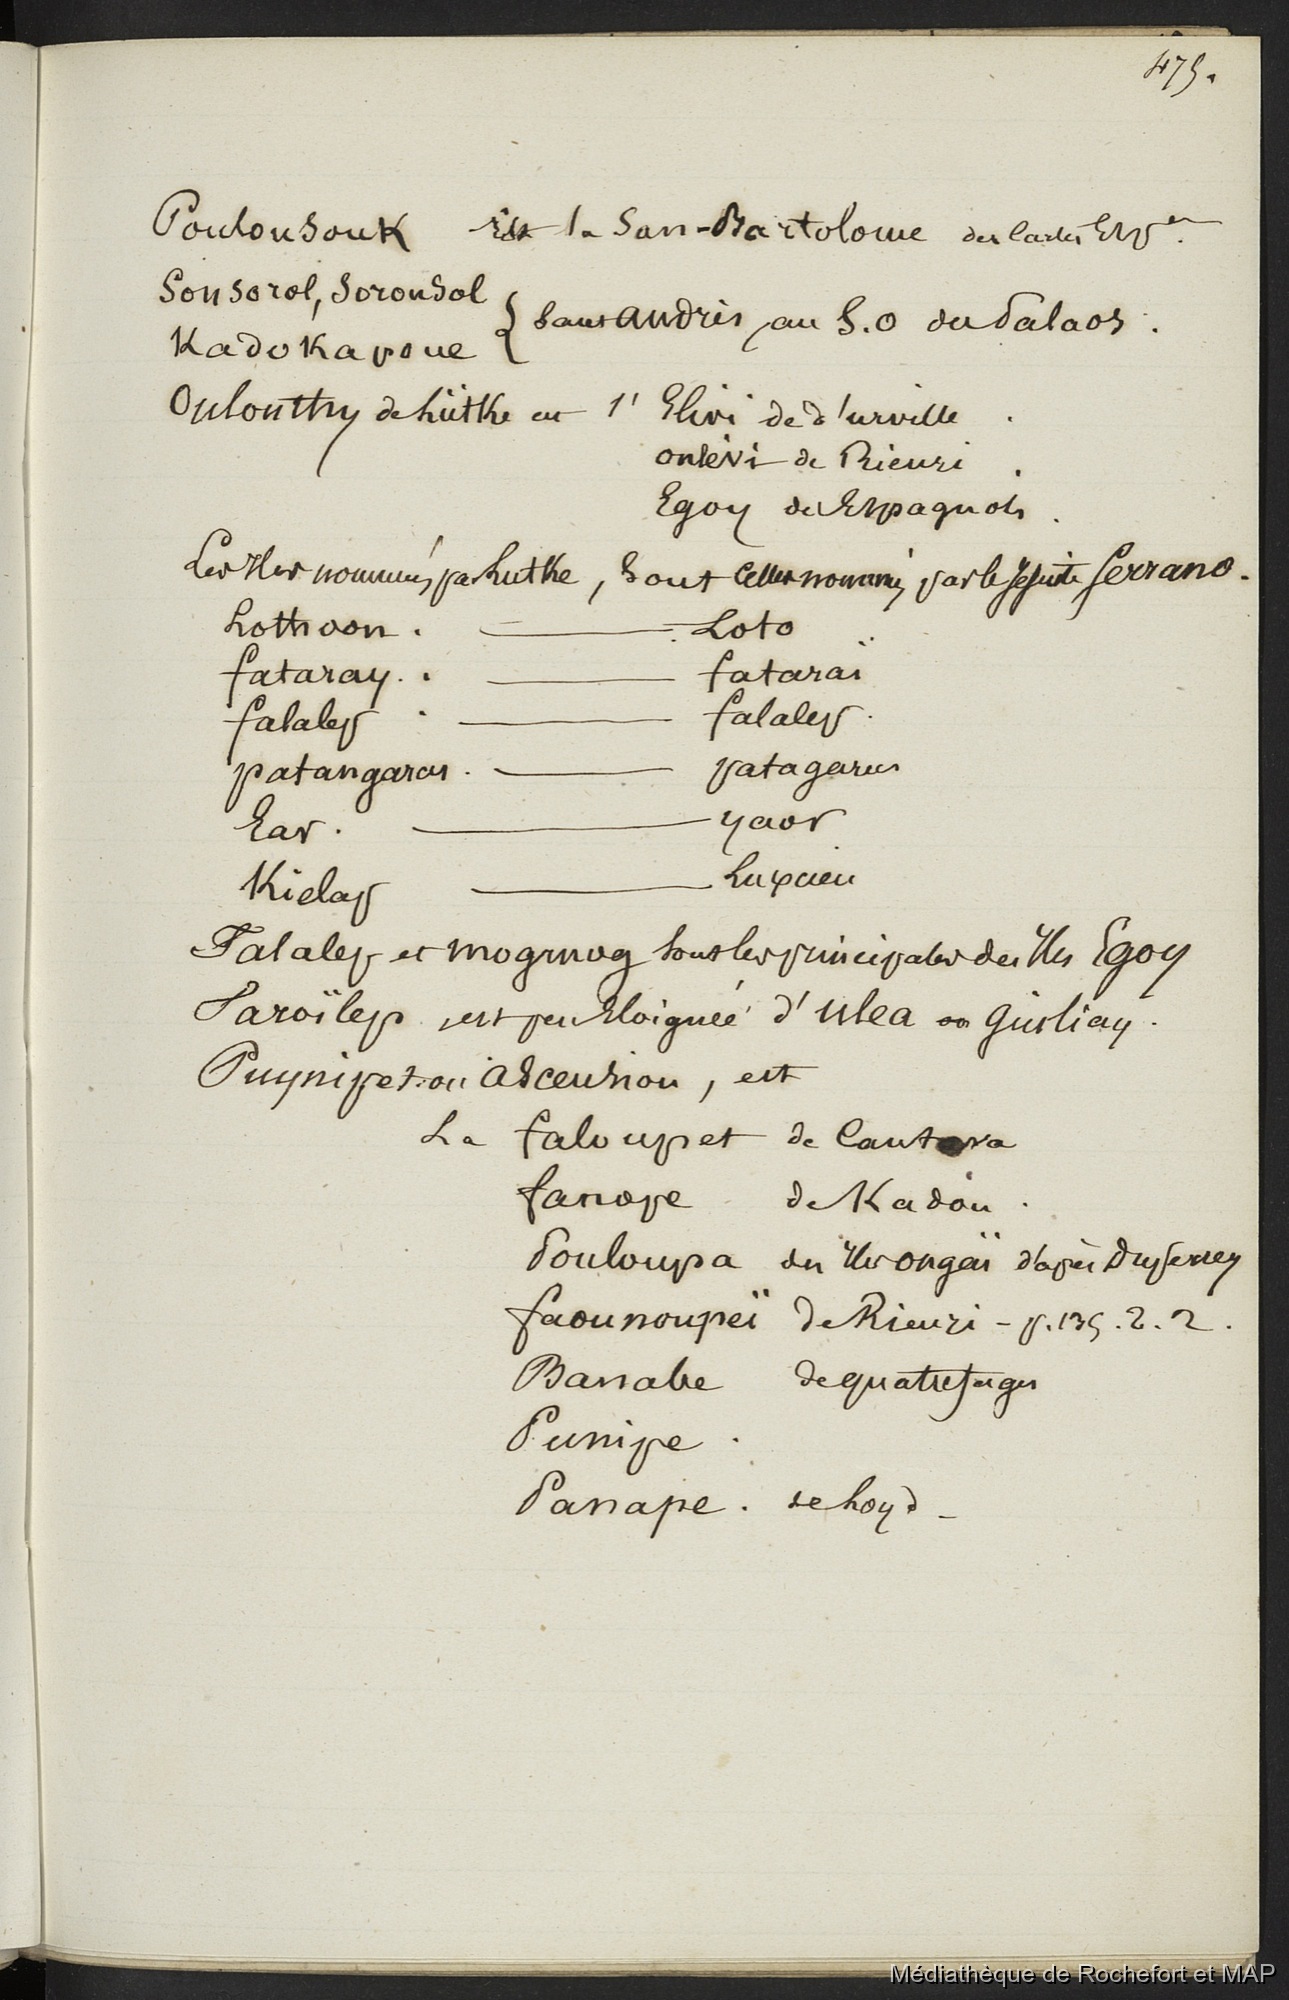 475.
Poulousouk est la San-Bartolome des Cartes Esp.
Sonsorol, Soronsol
Kadokapoue { Sans andrès, au S.O des Palaos.
Oulouthy de Lütke est l' Elivi de d'urville.
oulévi de Rienzi.
Egoy des Espagnols.
Les Iles nommées par Lutke, sont celles nommées par le jésuite Serrano.
Lothoou. — Loto
fataray. — fataraï
falalep — falalep.
patangaras. — patagaras
Ear. — yaor
Kielap
Falalep et mogmog sont les principales des Iles Egoy
Faroïlep, est peu Eloignée d'ulea ou guliay.
Puynipet ou ascension, est
La faloupet de Cantova
fanope de Kadou.
Pouloupa des Iles ongaï d'après Duperrey
faounoupeï de Rienzi - p. 135. 2. 2.
Banabe de quatrefages
Punipe.
Panape. de Loyd -
Médiathèque de Rochefort et MAP